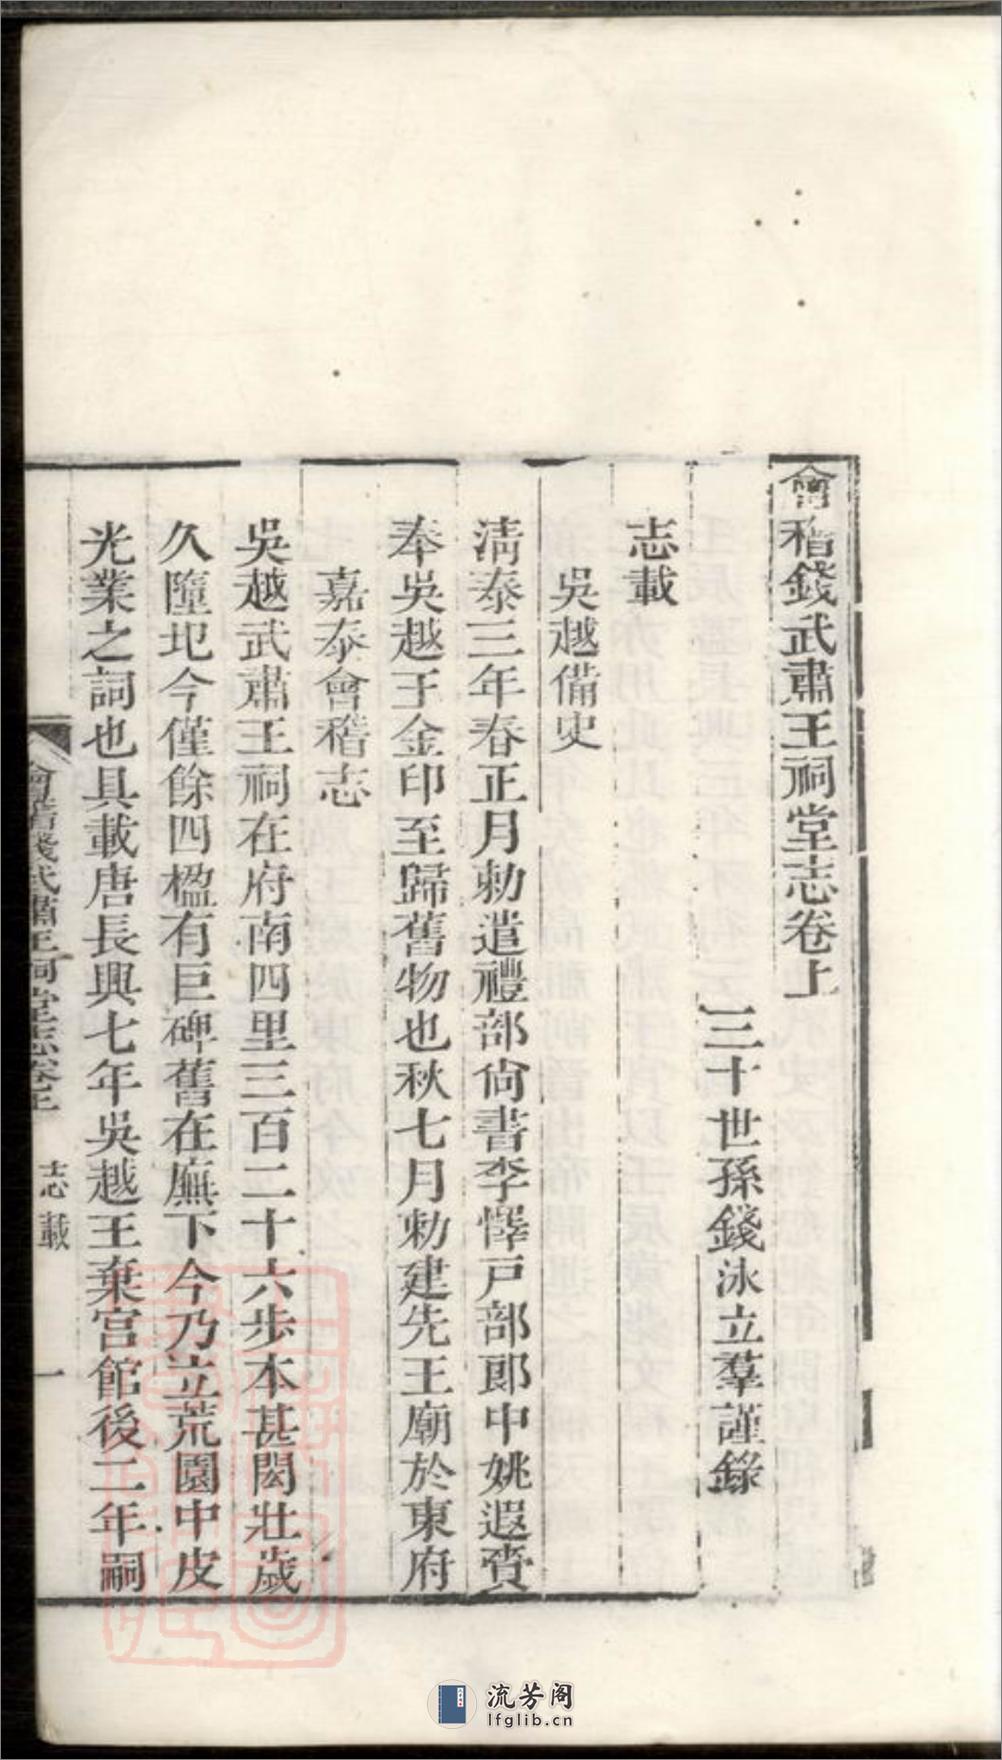 會稽錢武肅王祠堂志卷上
三十世孫錢泳立羣謹錄
志載
吳越備史
淸泰三年春正月勅遣禮部尙書李懌戸部郞中姚遐賫
奉吳越王金印至歸舊物也秋七月勅建先王廟於東府
嘉泰會稽志
吳越武肅王祠在府南四里三百二十六步本甚閎壯歲
久隳圯今僅餘四楹有巨碑舊在廡下今乃立荒園中皮
光業之詞也具載唐長興七年吳越王棄宫館後二年嗣
會稽錢武肅王祠堂志卷上 志載 一
流芳阁
lfglib.cn